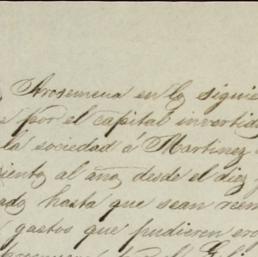 Arosemena en lo siguie
por el capital invertid
la sociedad á Martinez
iento al año, desde el diez y
ado hasta que sean reem
gastos que pudieren ero